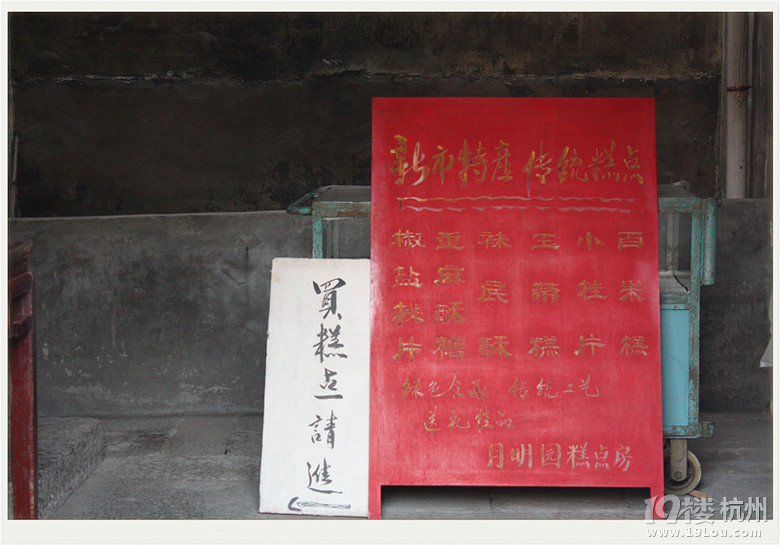 新市特產 传统糕点
百果糕
小桂片
玉带糕
袜底酥
重麻酥糖
椒盐桃片
绿色食品 传统工艺
送礼佳品
月明园糕点房
買糕点請進
19楼 杭州
www.19lou.com